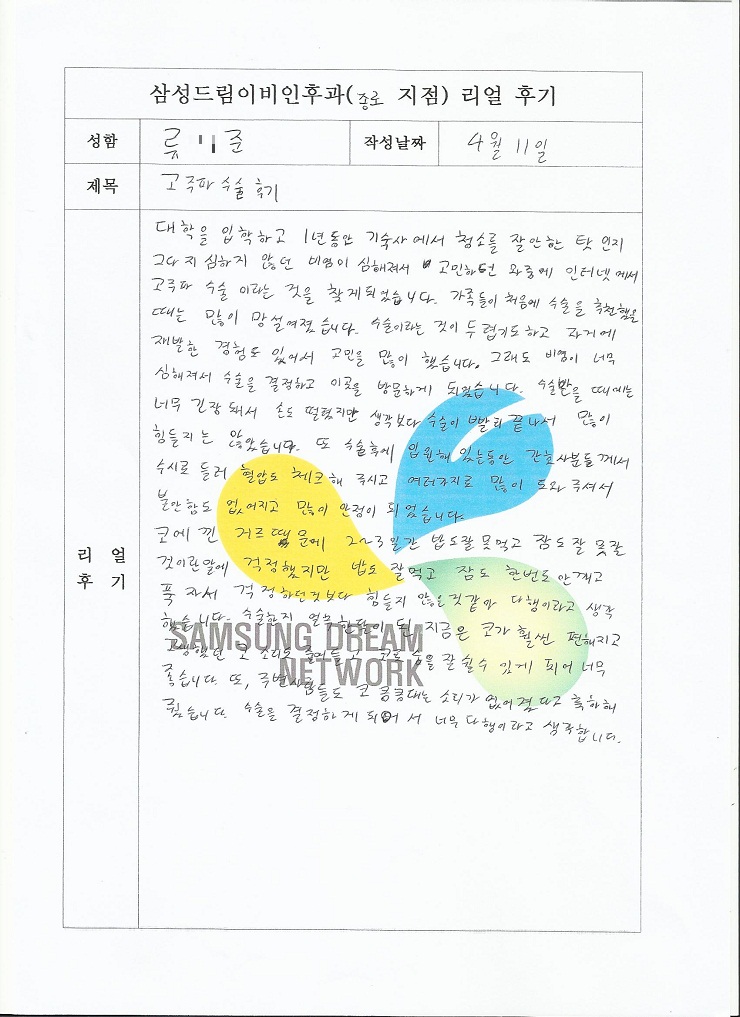 삼성드림이비인후과(종로 지점) 리얼 후기
성함 류 준 작성날짜 4월 11일
제목 고주파 수술 후기
리 얼
후 기
대학을 입학하고 1년동안 기숙사에서 청소를 잘안한 탓 인지
그다지 심하지 않던 비염이 심해져서 고민하던 와중에 인터넷에서
고주파 수술 이라는 것을 찾게되었습니다. 가족들이 처음에 수술을 추천했을
때는 많이 망설여졌습니다. 수술이라는 것이 두렵기도하고 과거에
재발한 경험도 있어서 고민을 많이 했습니다. 그래도 비염이 너무
심해져서 수술을 결정하고 이곳을 방문하게 되었습니다. 수술받을 때에는
너무 긴장 돼서 손도 떨렸지만 생각보다 수술이 빨리 끝나서 많이
힘들지는 않았습니다. 또 수술후에 입원해 있는동안 간호사분들께서
수시로 들러 혈압도 체크해 주시고 여러가지로 많이 도와주셔서
불안함도 없어지고 많이 안정이 되었습니다.
코에 낀 거즈 때문에 2~3일간 밥도잘못먹고 잠도잘못잘
것이란말에 걱정했지만 밥도 잘먹고 잠도 한번도안깨고
푹 자서 걱정하던것보다 힘들지 않은것같아 다행이라고 생각
했습니다. 수술한지 얼추한달이 된 지금은 코가 훨씬 편해지고
코 소리도 줄어들고 코로 숨을 잘 쉴수 있게 되어 너무
좋습니다. 또, 주변사람들도 코 킁킁대는 소리가 없어졌다고 축하해
줬습니다. 수술을 결정하게 되어서 너무다행이라고 생각합니다.
SAMSUNG DREAM
NETWORK